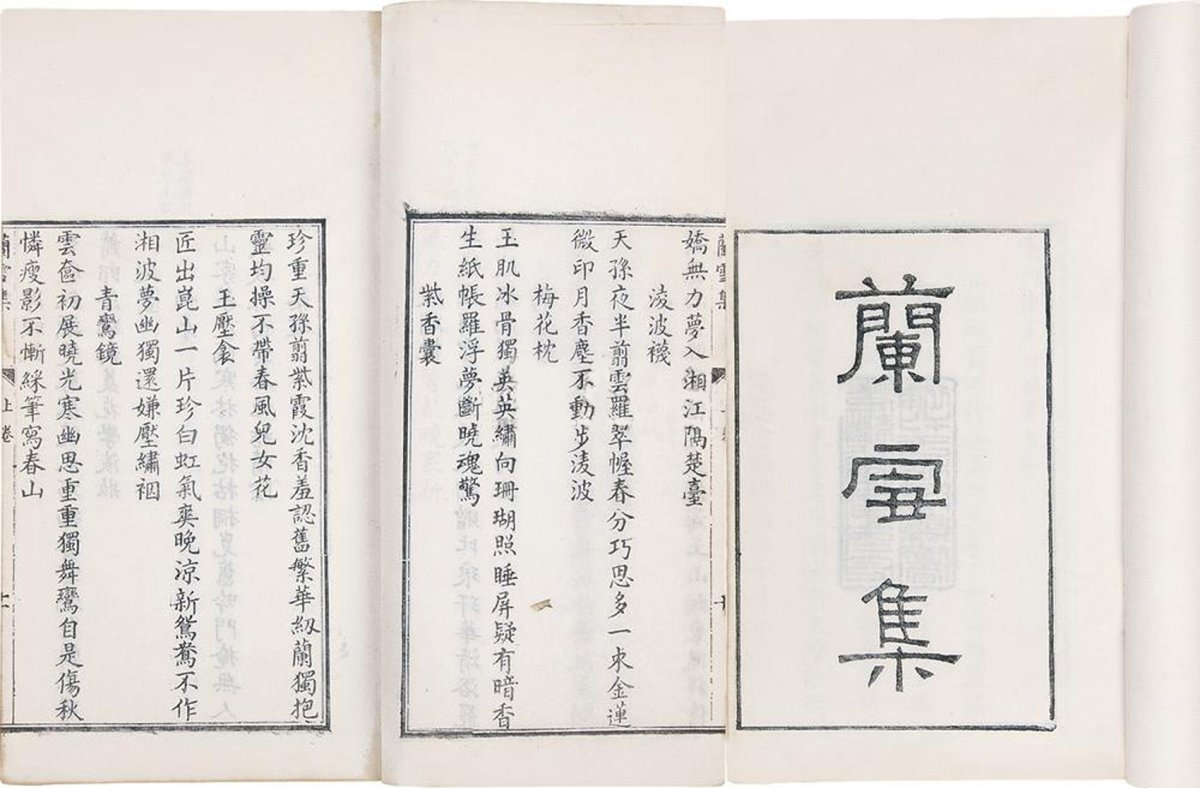 蘭雪集
蘭雪集
嬌無力夢入湘江隔楚臺
淩波襪
天孫夜半翦雲羅翠幄春分巧思多一束金蓮
微印月香塵不動步淩波
梅花枕
玉肌冰骨獨英英繡向珊瑚照睡屏疑有暗香
生紙帳羅浮夢斷曉魂驚
紫香囊
珍重天孫翦紫霞沈香羞認舊繁華紉蘭獨抱
靈均操不帶春風兒女花
玉壓衾
匠出崑山一片珍白虹氣爽晚涼新鴛鴦不作
湘波夢幽獨還嫌壓繡裀
青鸞鏡
雲奩初展曉光寒幽思重重獨舞鸞自是傷秋
憐瘦影不慚綵筆寫春山
蘭雪集 上卷